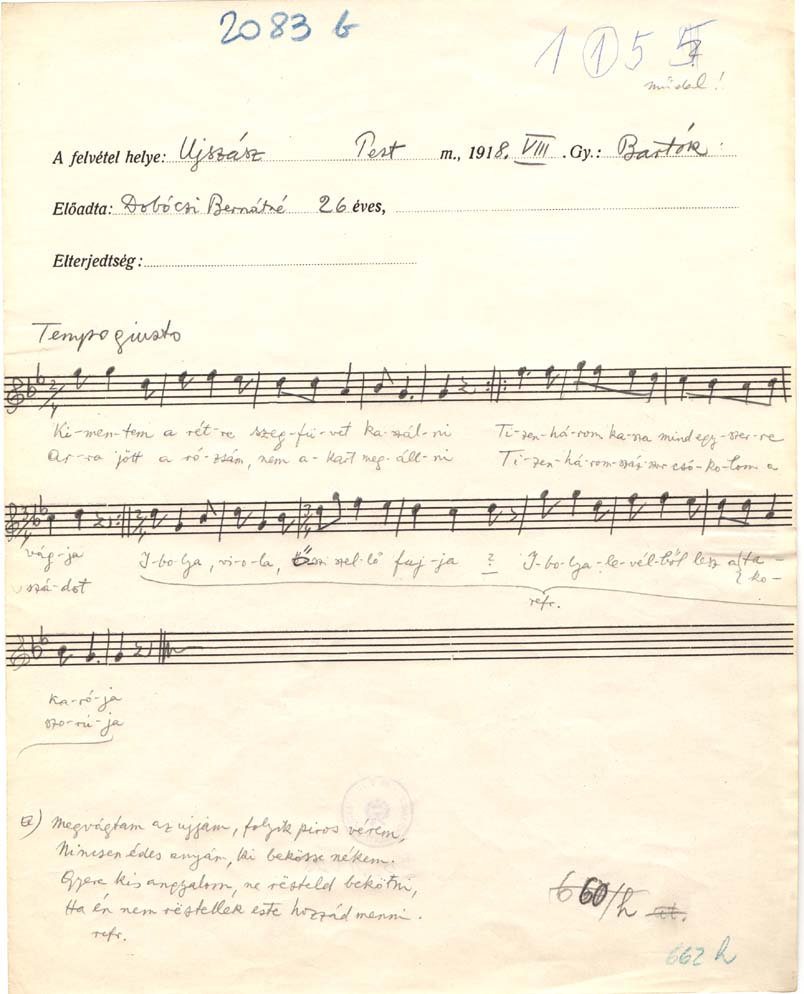 2083 b
1 1 5 5
műdal!
A felvétel helye: Ujszász Pest m., 1918. VIII. Gy.: Bartók
Előadta: Dobócsi Bernátné 26 éves,
Elterjedtség:
Tempo giusto
Ki-men-tem a rét-re szeg-fü-vet ka-szál-ni Ti-zen-há-rom ka-sza mind egy-szer-re
Ar-ra jött a ró-zsám, nem a-kart meg-áll-ni Ti-zen-há-rom-száz-szor csó-ko-lom a
vág-ja I-bo-lya, vi-o-la, Őszi szel-lő fuj-ja ? I-bo-lya-le-vél-ből lesz a ta-
szá-dot ko-
refr.
ka-ró-ja
szo-rú-ja
2) Megvágtam az ujjám, folyik piros vérem,
Nincsen édes anyám, ki bekösse nékem.
Gyere kis angyalom, ne rësteld bekötni,
Ha én nem rëstellek este hozzád menni.
refr.
660/h
662 h